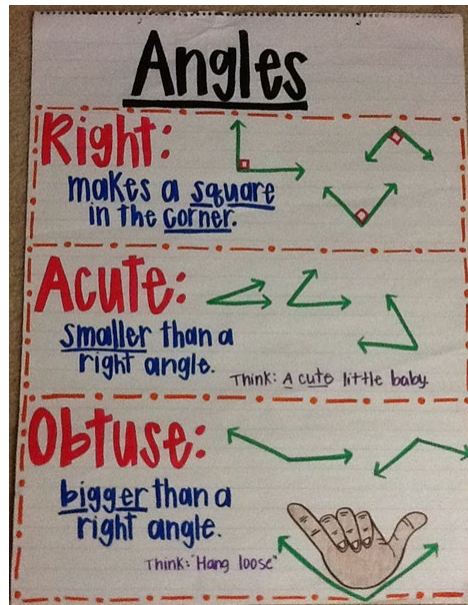 Angles
Right:
makes a square
in the corner.
Acute:
smaller than a
right angle.
Think: A cute little baby.
Obtuse:
bigger than a
right angle.
Think: "Hang loose"